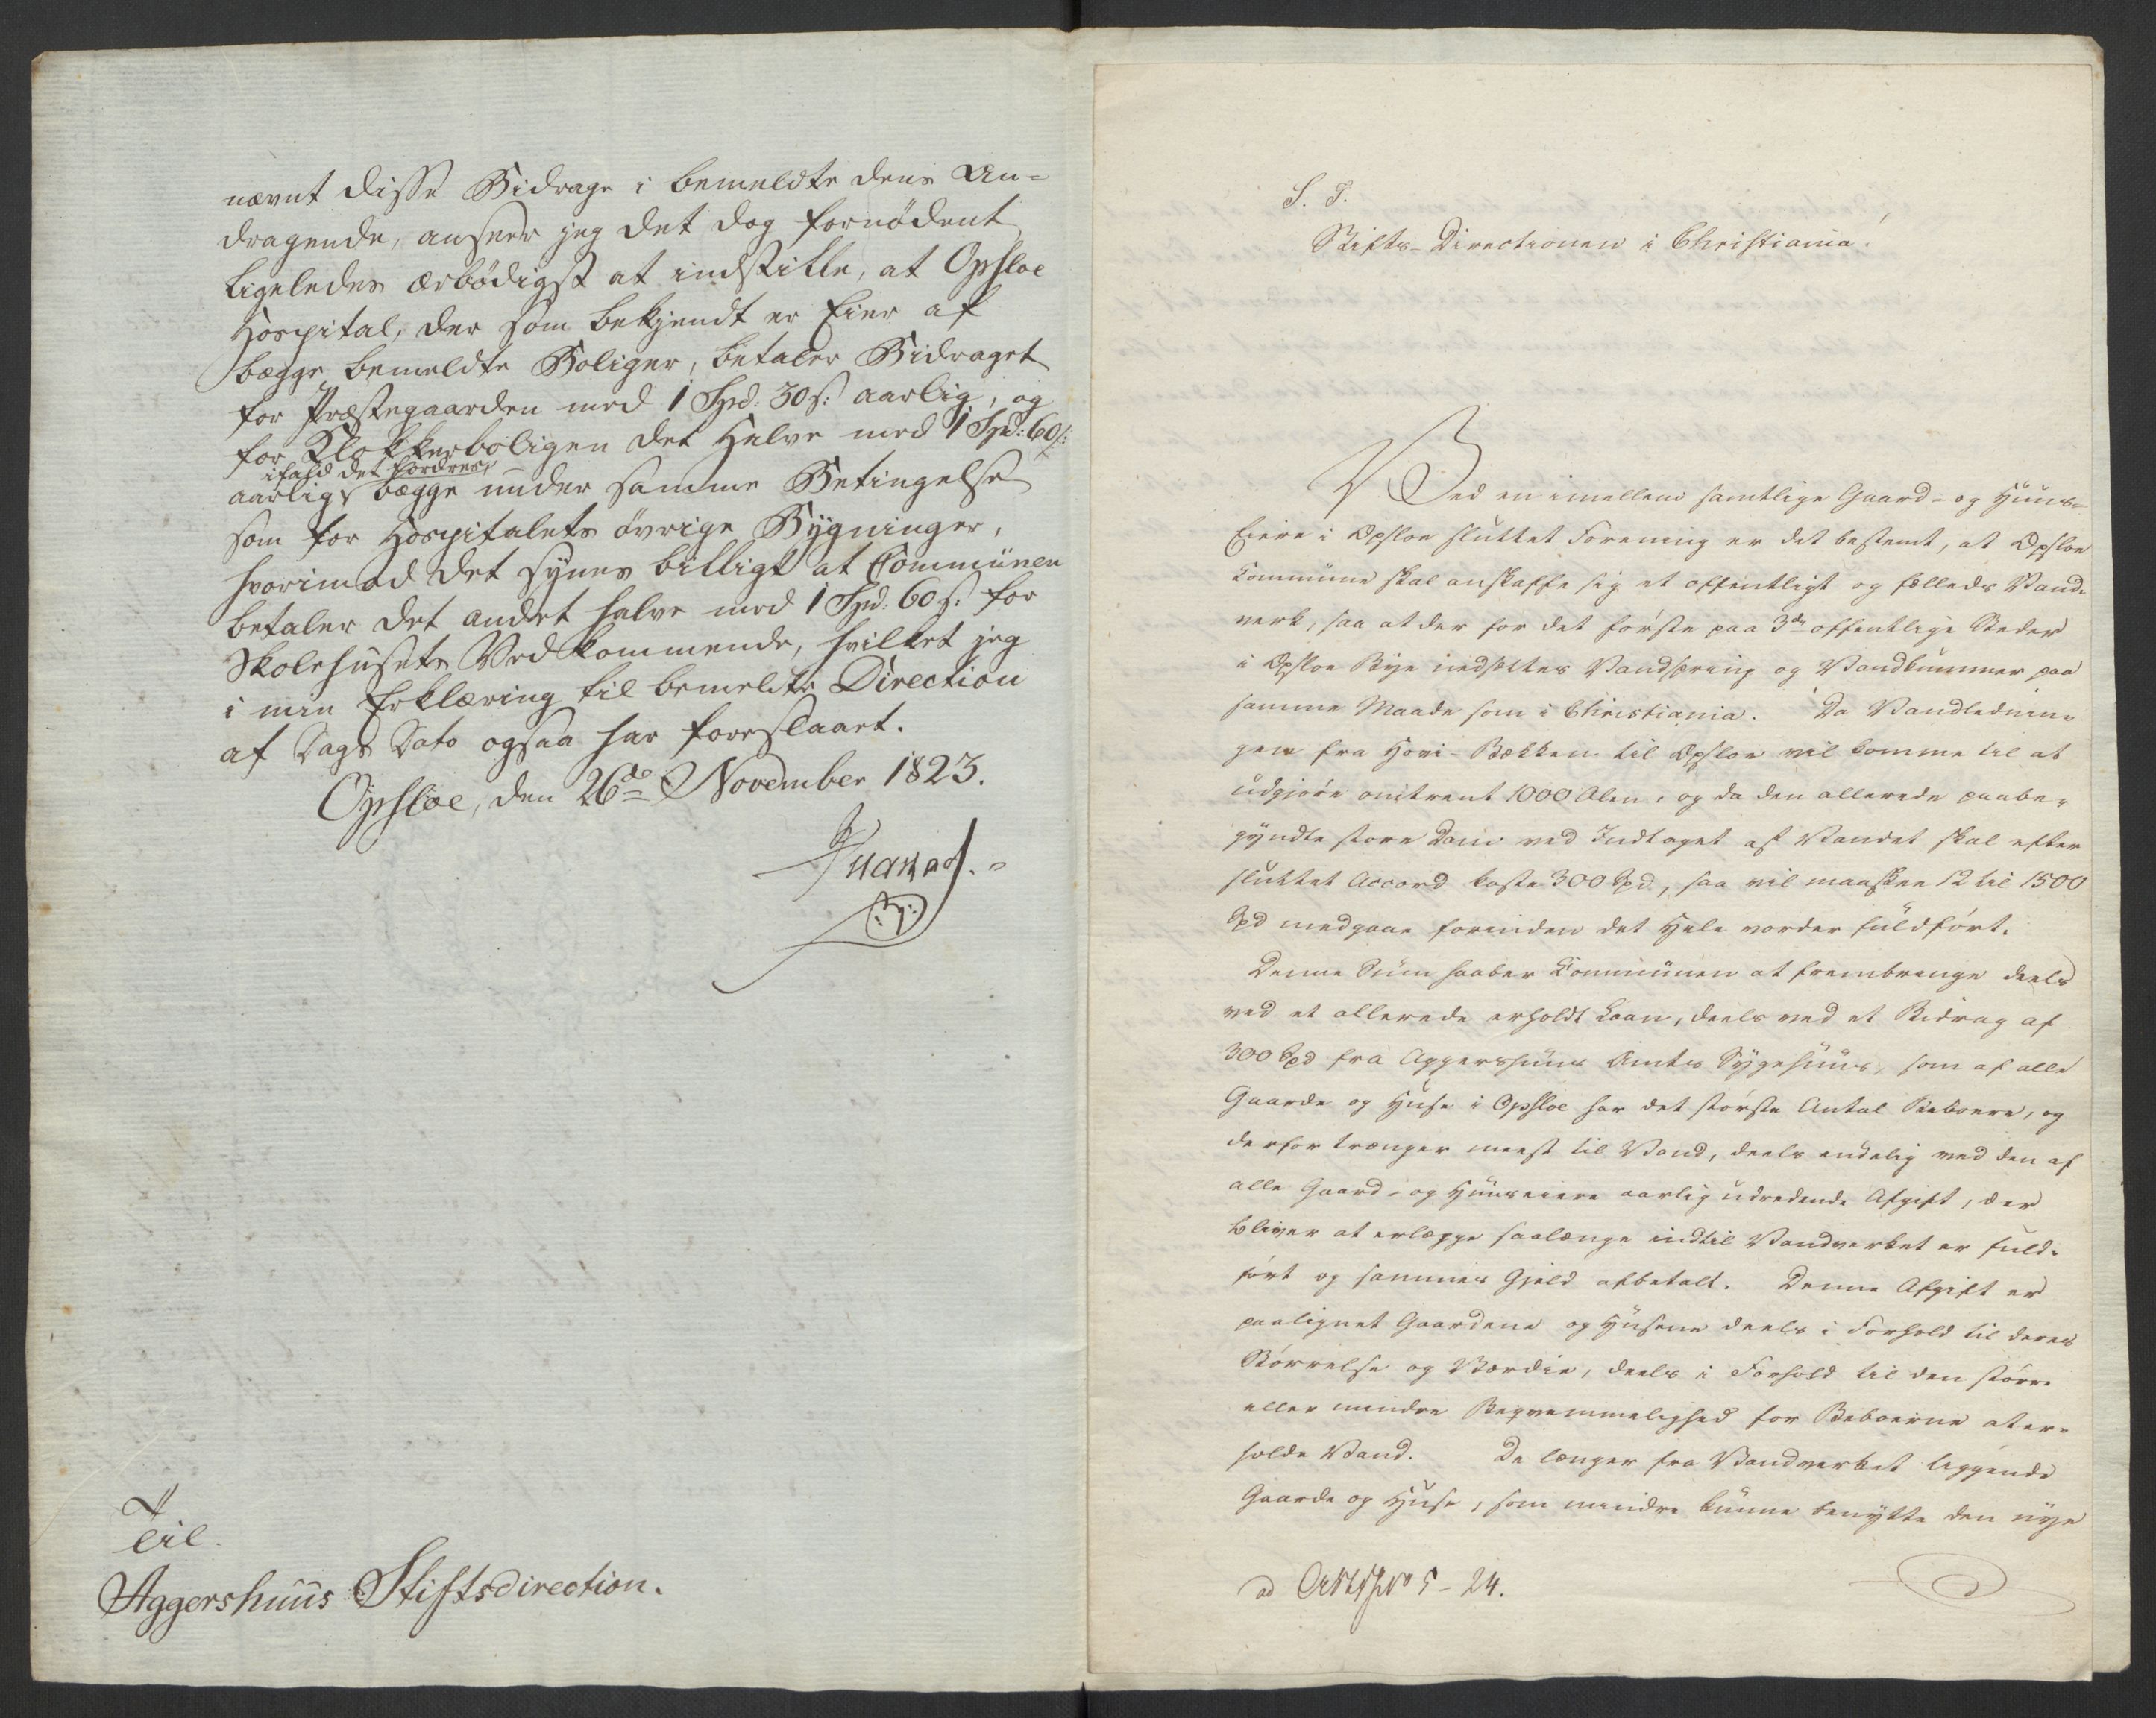 nævnt disse Bidrage i bemeldte dens An-
dragende, anseer jeg det dog fornødent
ligeledes ærbødigst at indstille, at Opsloe
Hospital, der som bekjendt er Eier af
begge bemeldte Boliger, betaler Bidraget
for Præstegaarden med 1 Spd: 30 s: aarlig, og
for Klokkerboligen det Halve med 1 Spd: 60 s:
ifald det fordres,
aarlig begge under samme Betingelse
som for Hospitalets øvrige Bygninger,
hvorimod det synes billigt at Communen
betaler det andet halve med 1 Spd. 60 s. for
Skolehusets Vedkommende, hvilket jeg
i min Erklæring til bemeldte Direction
af Dags Dato ogsaa har foreslaaet.
Opsloe, den 26de November 1823.
Til
Aggershuus Stiftsdirection.
S. T.
Stifts-Directionen i Christiania.
Ved en imellem samtlige Gaard- og Huus-
Eiere i Opsloe sluttet Forening er det bestemt, at Opsloe
Commune skal anskaffe sig et offentligt og fælleds Vand-
verk, saa at der for det første paa 3de offentlige Steder
i Opsloe Bye indsættes Vandspring og Vandkummer paa
samme Maade som i Christiania. Da Vandlednin-
gen fra Hovi-Bækken til Opsloe vil komme til at
udgjøre omtrent 1000 Alen, og da den allerede paabe-
gyndte store Dam ved Indtaget af Vandet skal efter
sluttet Accord koste 300 Spd, saa vil maaskee 12 til 1500
Spd medgaae forinden det Hele vorder fuldført.
Denne Sum haaber Communen at frembringe deels
ved et allerede erholdt Laan, deels ved et Bidrag af
300 Spd fra Aggershuus Amts Sygehuus, som af alle
Gaarde og Huse i Opsloe har det største Antal Beboere, og
derfor trænger meest til Vand, deels endelig ved den af
alle Gaard- og Huuseiere aarlig udredende Afgift, der
bliver at erlægge saalænge indtil Vandverket er fuld-
ført og sammes Gjeld afbetalt. Denne Afgift er
paalignet Gaardene og Husene deels i Forhold til deres
Størrelse og Værdie, deels i Forhold til den større
eller mindre Beqvemmelighed for Beboerne at er-
holde Vand. De længer fra Vandverket liggende
Gaarde og Huse, som mindre kunne benytte den nye
ad 5-24.